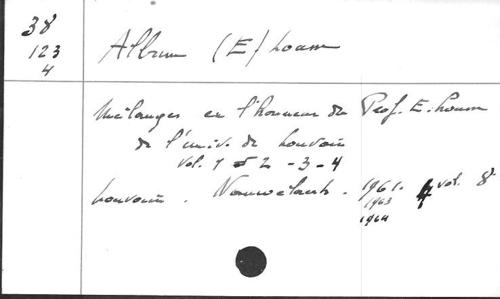 38
123
4
Album (E) Lousse
Mélanges en l'honneur de Prof. E. Lousse
de l'univ. de Louvain
vol. 1 et 2 - 3 - 4
Louvain. Nauwelaerts. 1961. 4 vol. 8
1963
1964